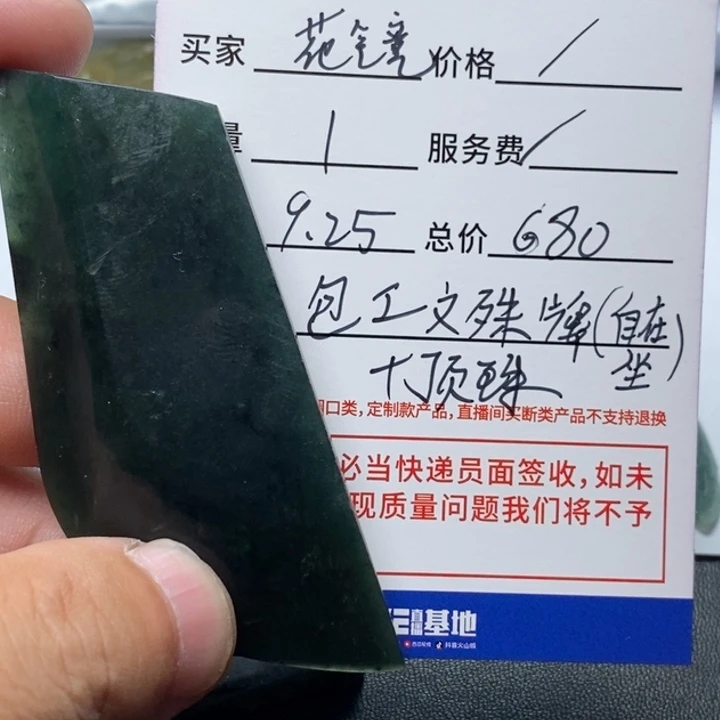 买家 花 价格 /
量 1 服务费 /
9.25 总价 680
包工文殊牌(自在坐)
十顶珠
口类,定制款产品,直播间买断类产品不支持退换
必当快递员面签收,如未
现质量问题我们将不予
直播基地